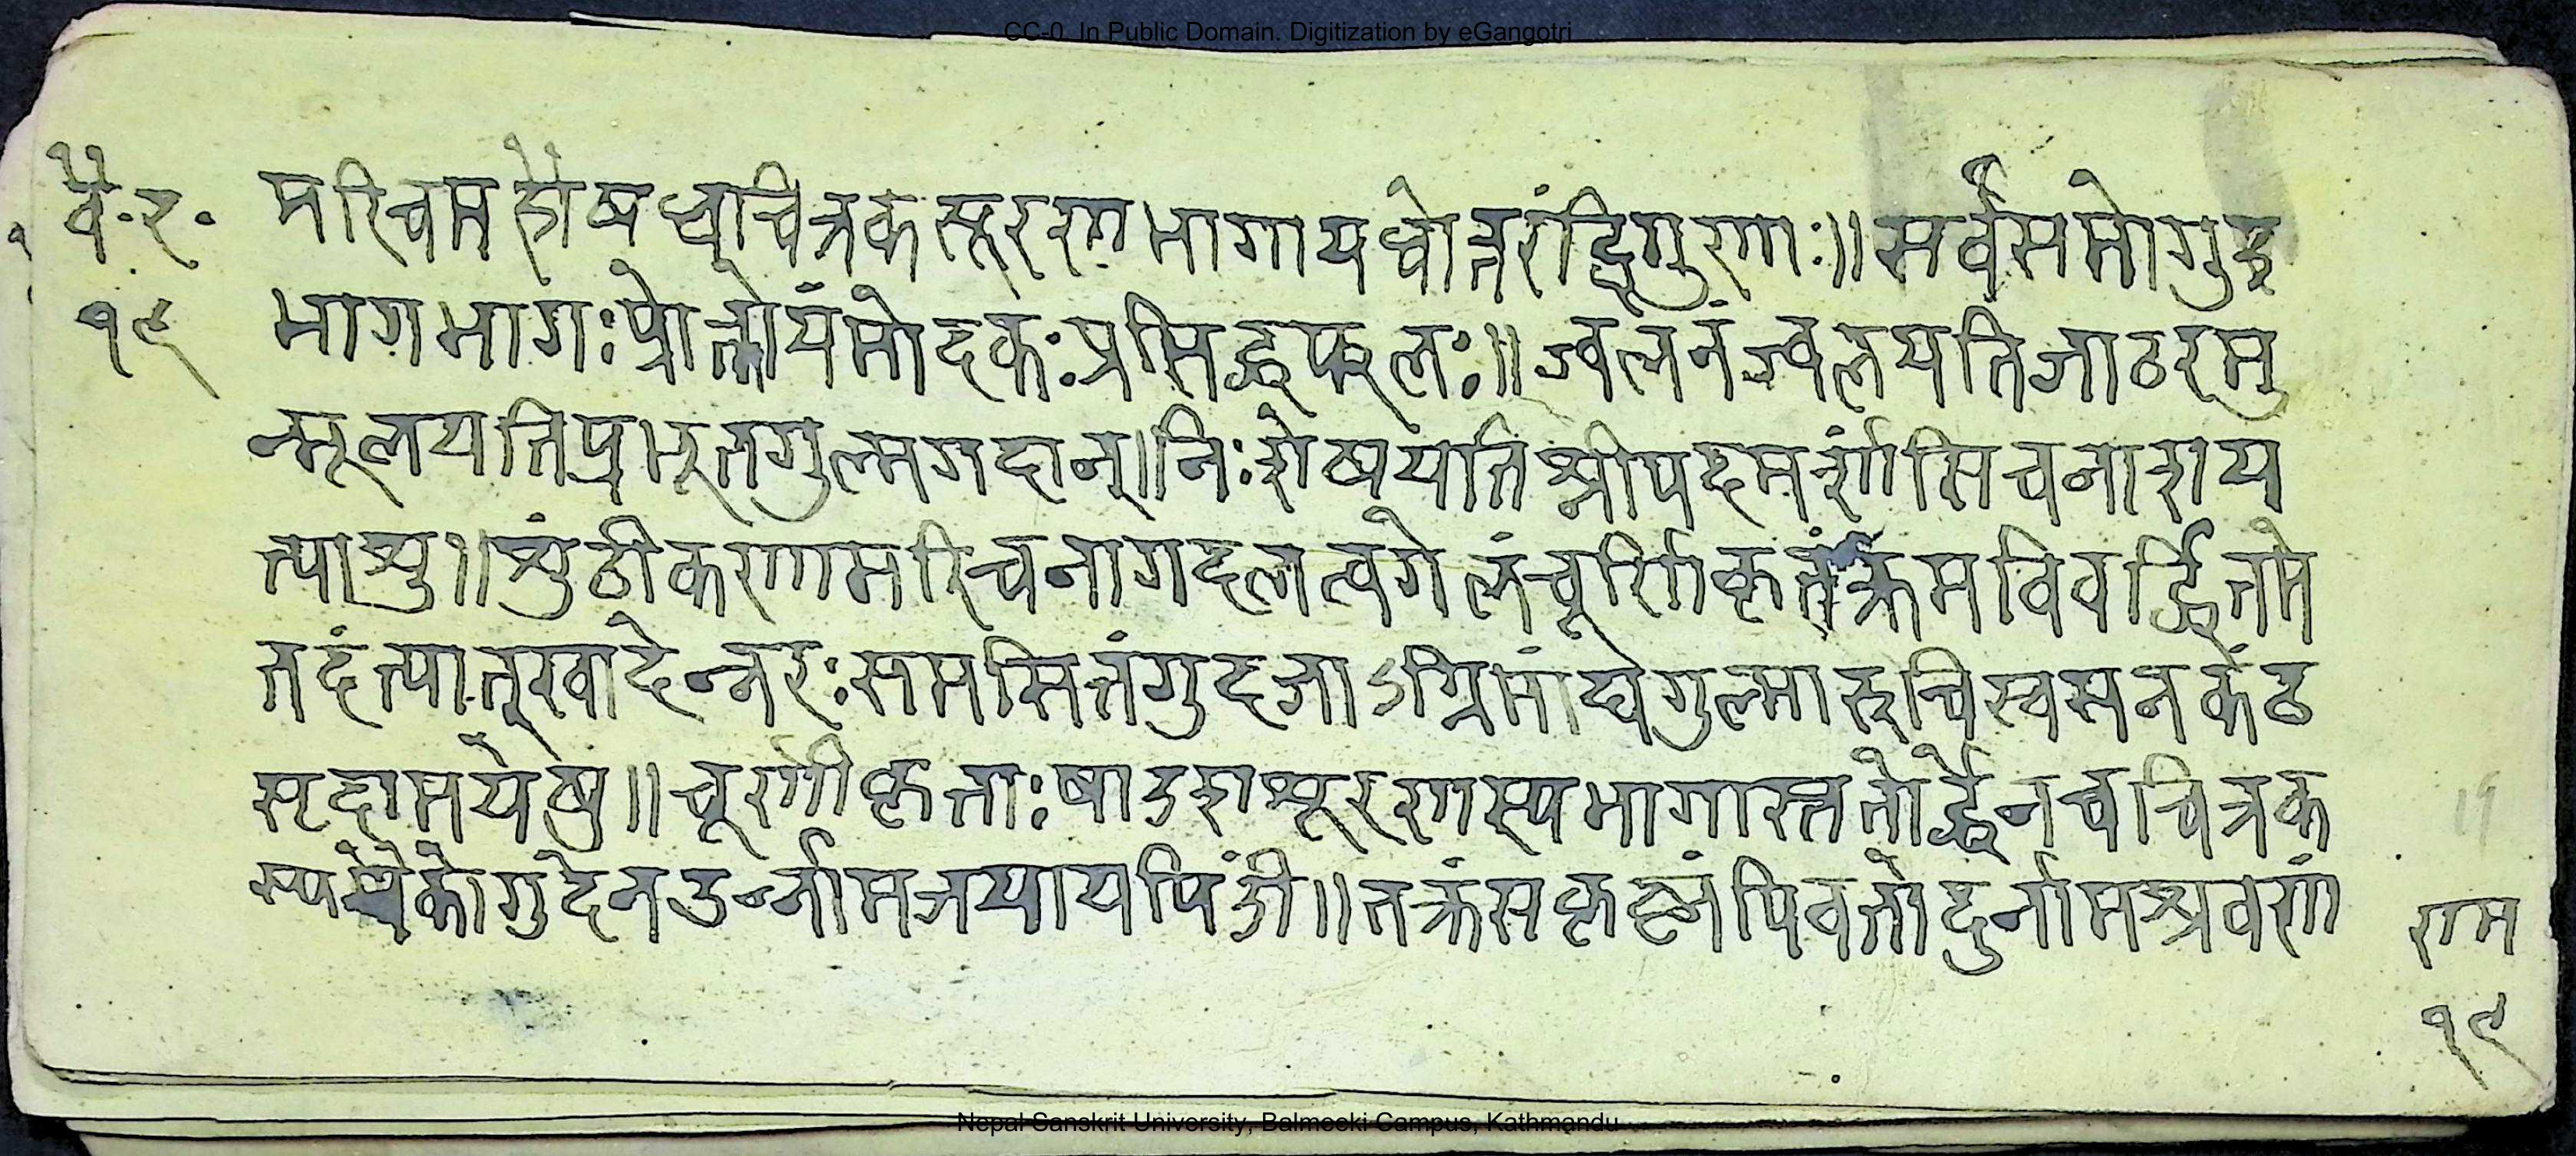 CC-0. In Public Domain. Digitization by eGangotri
वै. र. मरिचमहौषधचित्रकसूरणभागायथोत्तरंद्विगुणाः॥ सर्वसमोगुड
१९ भागभागःप्रोक्तोयंमोदकःप्रसिद्धफलः॥ ज्वलनंज्वलयतिजाठरमु
न्मूलयतिप्रभूतगुल्मगदान्॥निःशेषयतिश्लीपदमर्शांसिचनाशय
त्याशु॥शुंठीकणामरिचनागदलत्वगेलंचूर्णिकृतंक्रमविवर्द्धितमे
तदंत्यात्खादेन्नरःसमसितंगुदजाऽग्निमांद्यगुल्मारुचिस्वसनकंठ
सृदामयेषु॥चूर्णीकृताःषोडशशूरणस्यभागास्ततोर्द्धेनचचित्रक
गुदेन पिंडी॥तक्रं पिवतोदुर्नामश्रवणं
राम
१९
Nepal Sanskrit University, Balmeeki Campus, Kathmandu